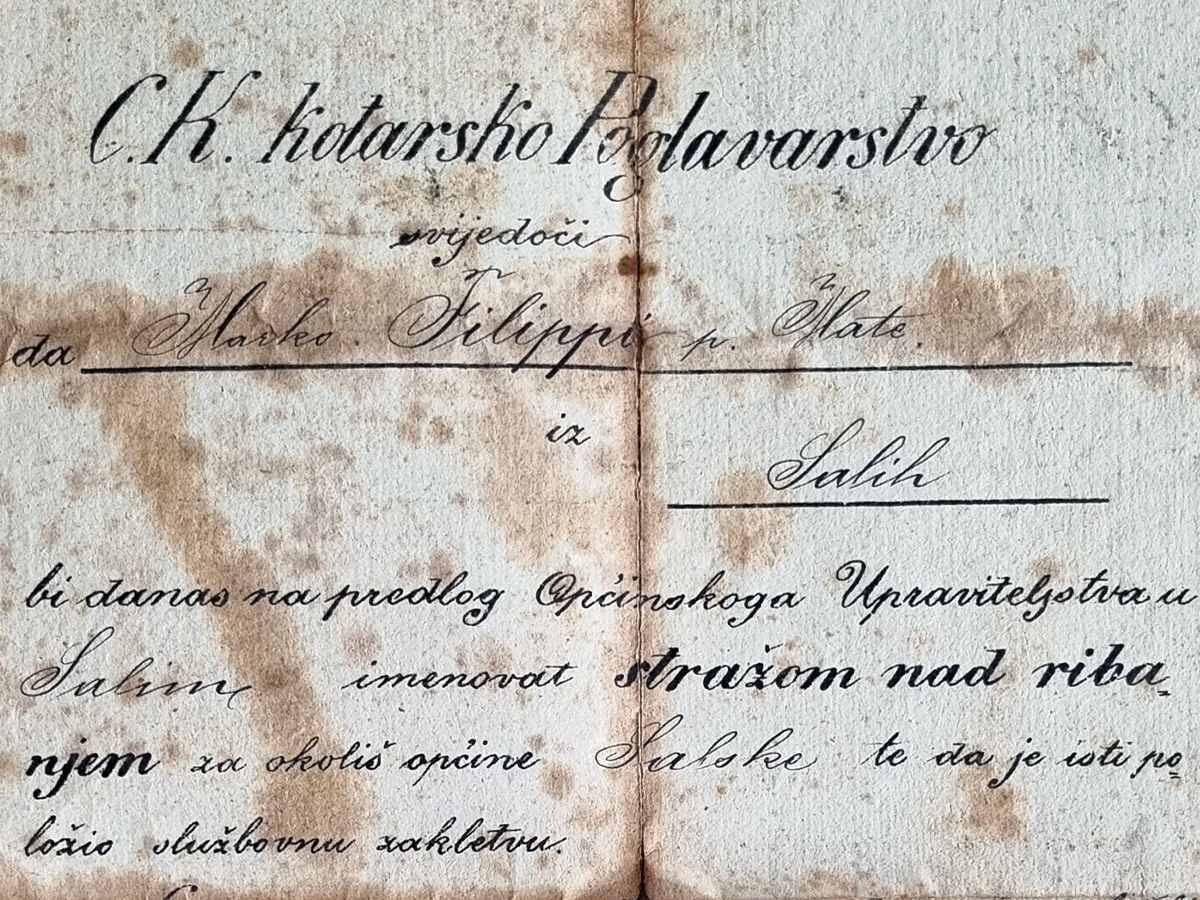 C. K. kotarsko Poglavarstvo
svijedoči
da Marko Filippi p. Mate.
iz
Salih
bi danas na predlog Općinskoga Upraviteljstva u
Salima imenovat stražom nad riba„
njem za okoliš općine Salske te da je isti po„
ložio službovnu zakletvu.